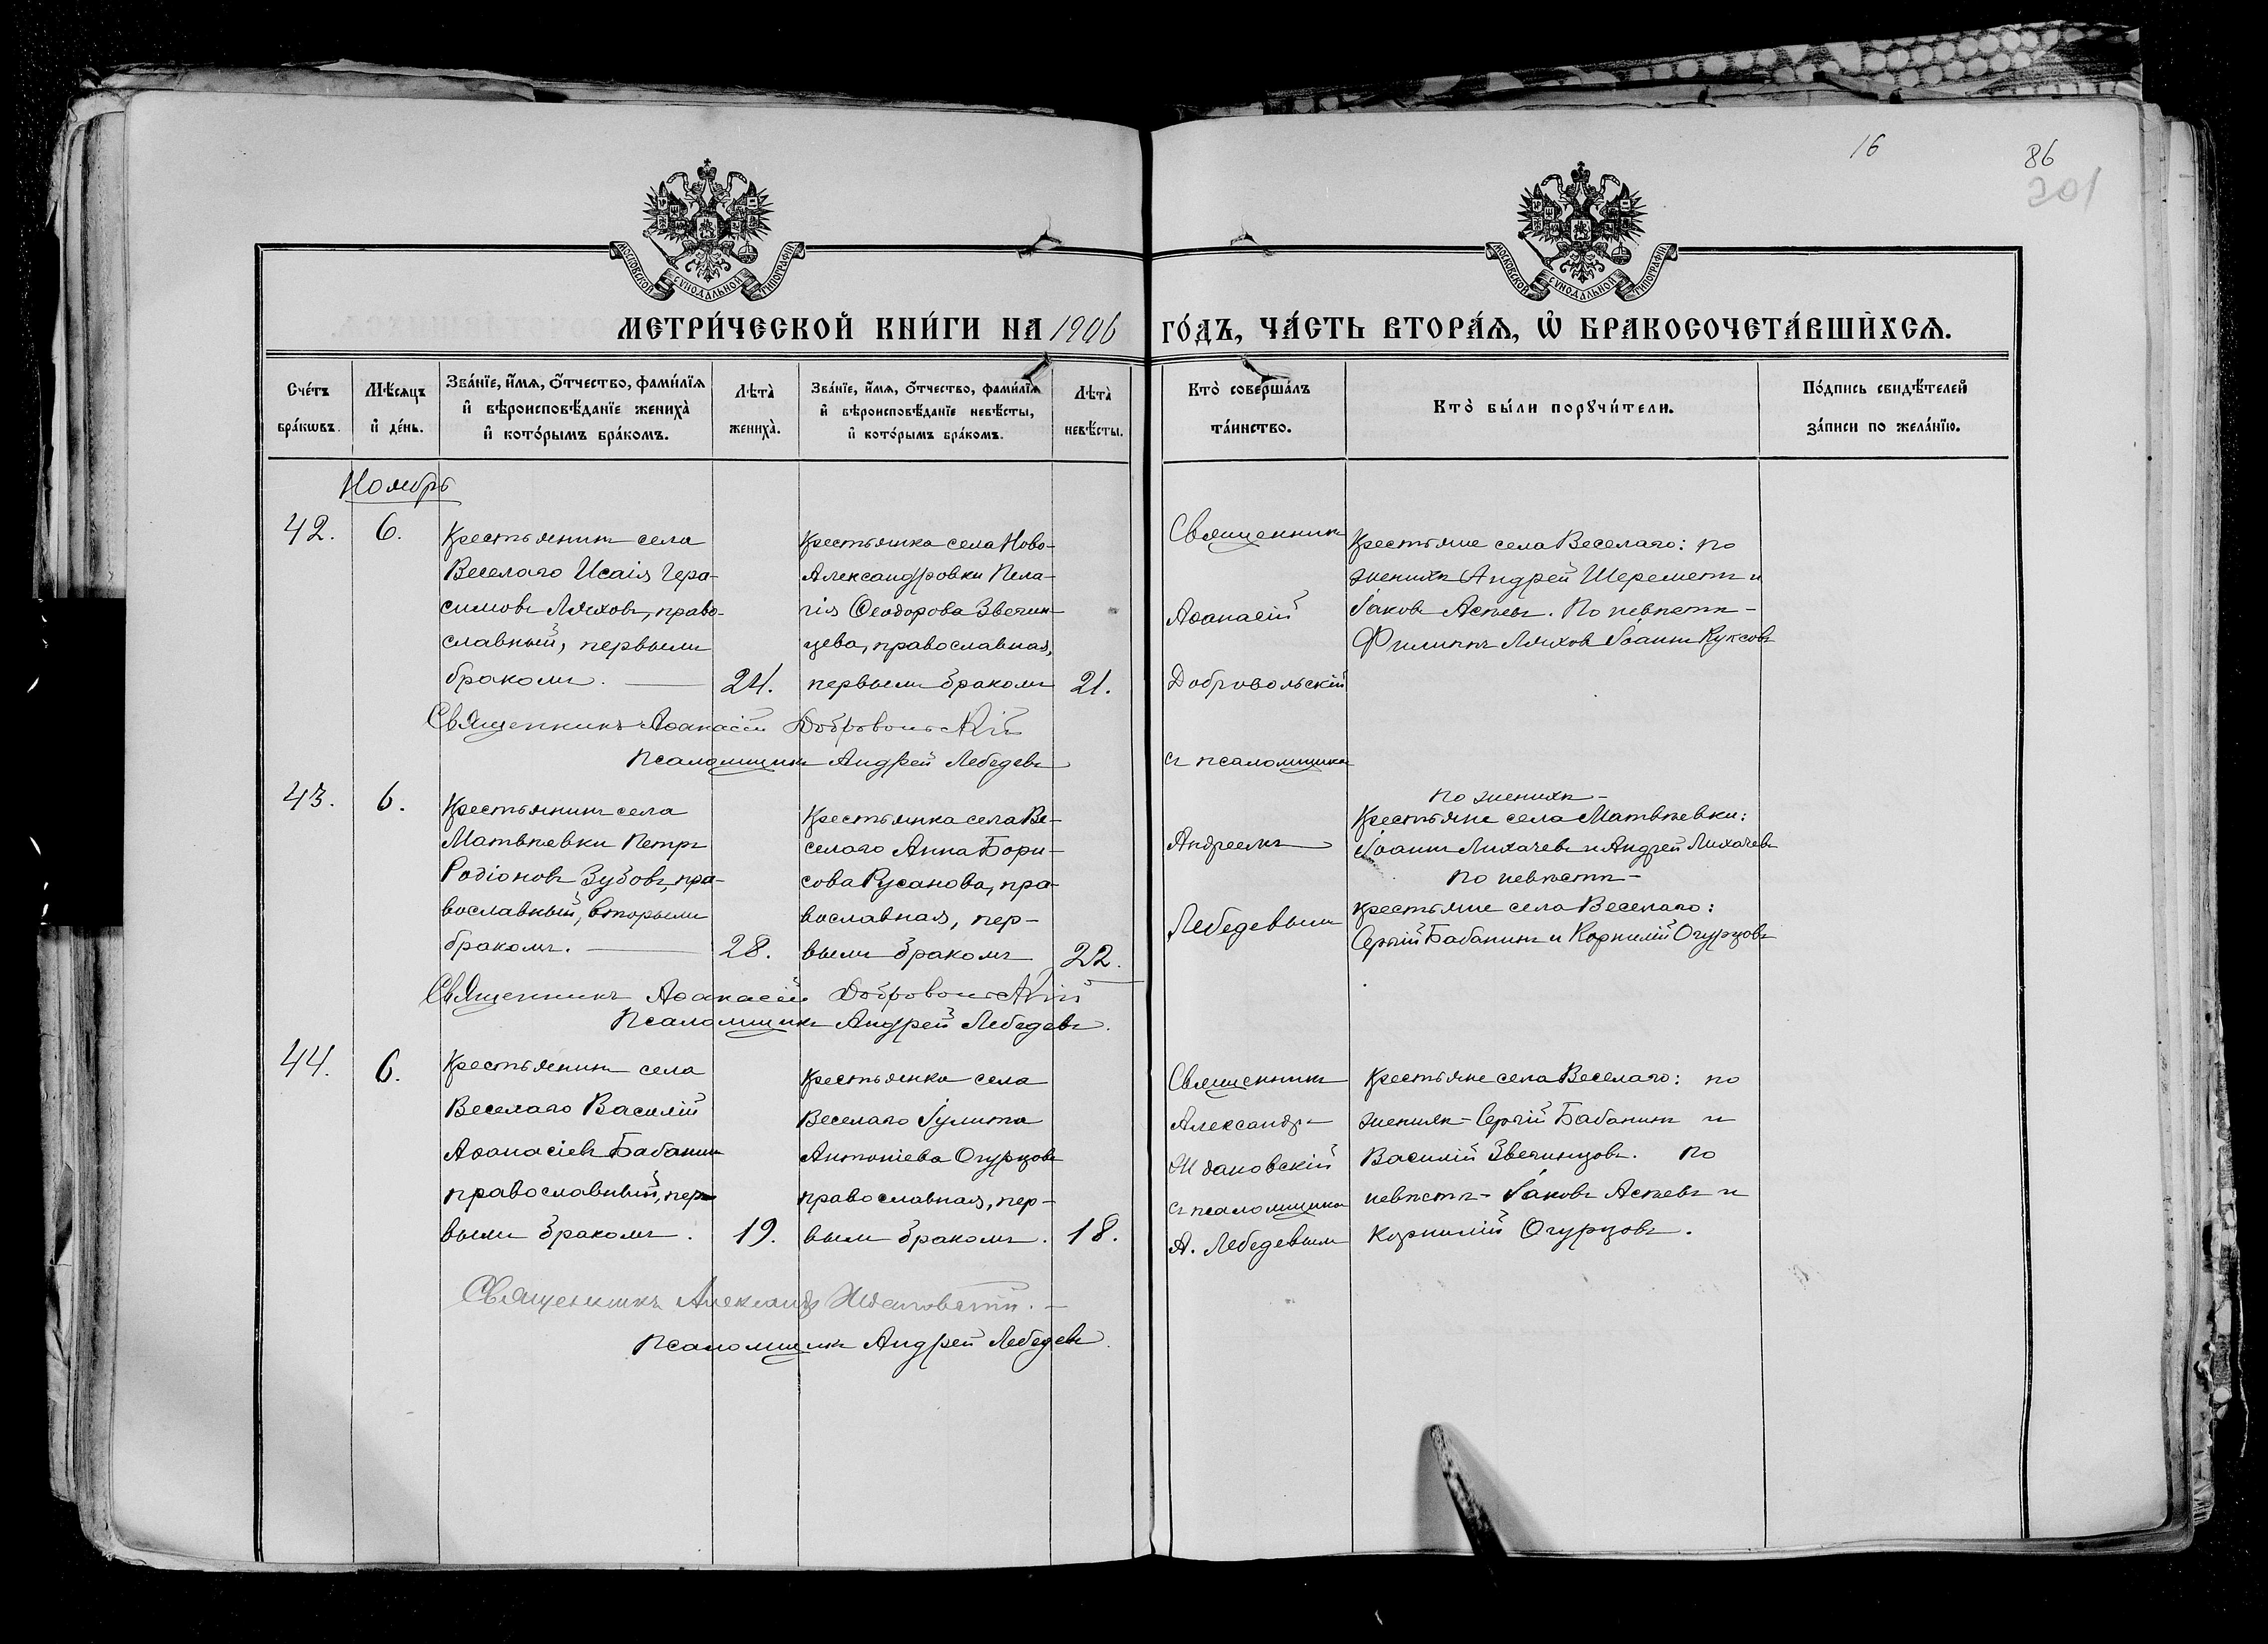 16
86
201
МОСКОВСКОЙ СѴНОДАЛЬНОЙ ТИПОГРАФІИ
МОСКОВСКОЙ СѴНОДАЛЬНОЙ ТИПОГРАФІИ
МЕТРИ́ЧЕСКОЙ КНИ́ГИ НА 1906 ГО́ДЪ, ЧА́СТЬ ВТОРА́Ѧ, Ѽ БРАКОСОЧЕТА́ВШИХСѦ.
Сче́тъ бра́кωвъ.
Мѣ́сѧцъ и҆ де́нь.
Зва́нїе, и҆́мѧ, ѻ҆́тчество, фами́лїѧ
и҆ вѣроисповѣ́данїе жениха̀
и҆ кото́рымъ бра́комъ.
Лѣта̀ жениха̀.
Зва́нїе, и҆́мѧ, ѻ҆́тчество, фами́лїѧ
и҆ вѣроисповѣ́данїе невѣ́сты,
и҆ кото́рымъ бра́комъ.
Лѣта̀ невѣ́сты.
Кто̀ соверша́лъ та́инство.
Кто̀ бы́ли порꙋчи́тели.
По́дпись свидѣ́телей за́писи по жела́нїю.
Ноябрь
42.
6.
Крестьянинъ села
Веселаго Исаія Гера-
симовъ Ляховъ, право-
славный, первымъ
бракомъ.
24.
Крестьянка села Ново-
Александровки Пела-
гія Ѳеодорова Звечин-
цева, православная,
первымъ бракомъ
21.
Священникъ
Аѳанасій
Добровольскій
съ псаломщикомъ
Крестьяне села Веселаго: по
женихѣ Андрей Шереметъ и
Іаковъ Асѣевъ. По невѣстѣ -
Филиппъ Ляховъ Іоаннъ Куксовъ
Священникъ Аѳанасій Добровольскій
Псаломщикъ Андрей Лебедевъ
43.
6.
Крестьянинъ села
Матвѣевки Петръ
Родіоновъ Зубовъ, пра-
вославный, вторымъ
бракомъ.
28.
Крестьянка села Ве-
селаго Анна Бори-
сова Русанова, пра-
вославная, пер-
вымъ бракомъ
22.
Андреемъ
Лебедевымъ
по женихѣ -
Крестьяне села Матвѣевки:
Іоаннъ Лихачевъ и Андрей Лихачевъ
по невѣстѣ -
крестьяне села Веселаго:
Сергій Бабанинъ и Корнилій Огурцовъ
Священникъ Аѳанасій Добровольскій
Псаломщикъ Андрей Лебедевъ.
44.
6.
Крестьянинъ села
Веселаго Василій
Аѳанасіевъ Бабанинъ
православный, пер-
вымъ бракомъ.
19.
Крестьянка села
Веселаго Іулита
Антоніева Огурцова
православная, пер-
вымъ бракомъ.
18.
Священникъ
Александръ
Ждановскій
съ псаломщикомъ
А. Лебедевымъ
Крестьяне села Веселаго: по
женихѣ - Сергій Бабанинъ и
Василій Звечинцовъ. По
невѣстѣ - Іаковъ Асѣевъ и
Корнилій Огурцовъ.
Священникъ Александръ Ждановскій. -
Псаломщикъ Андрей Лебедевъ.